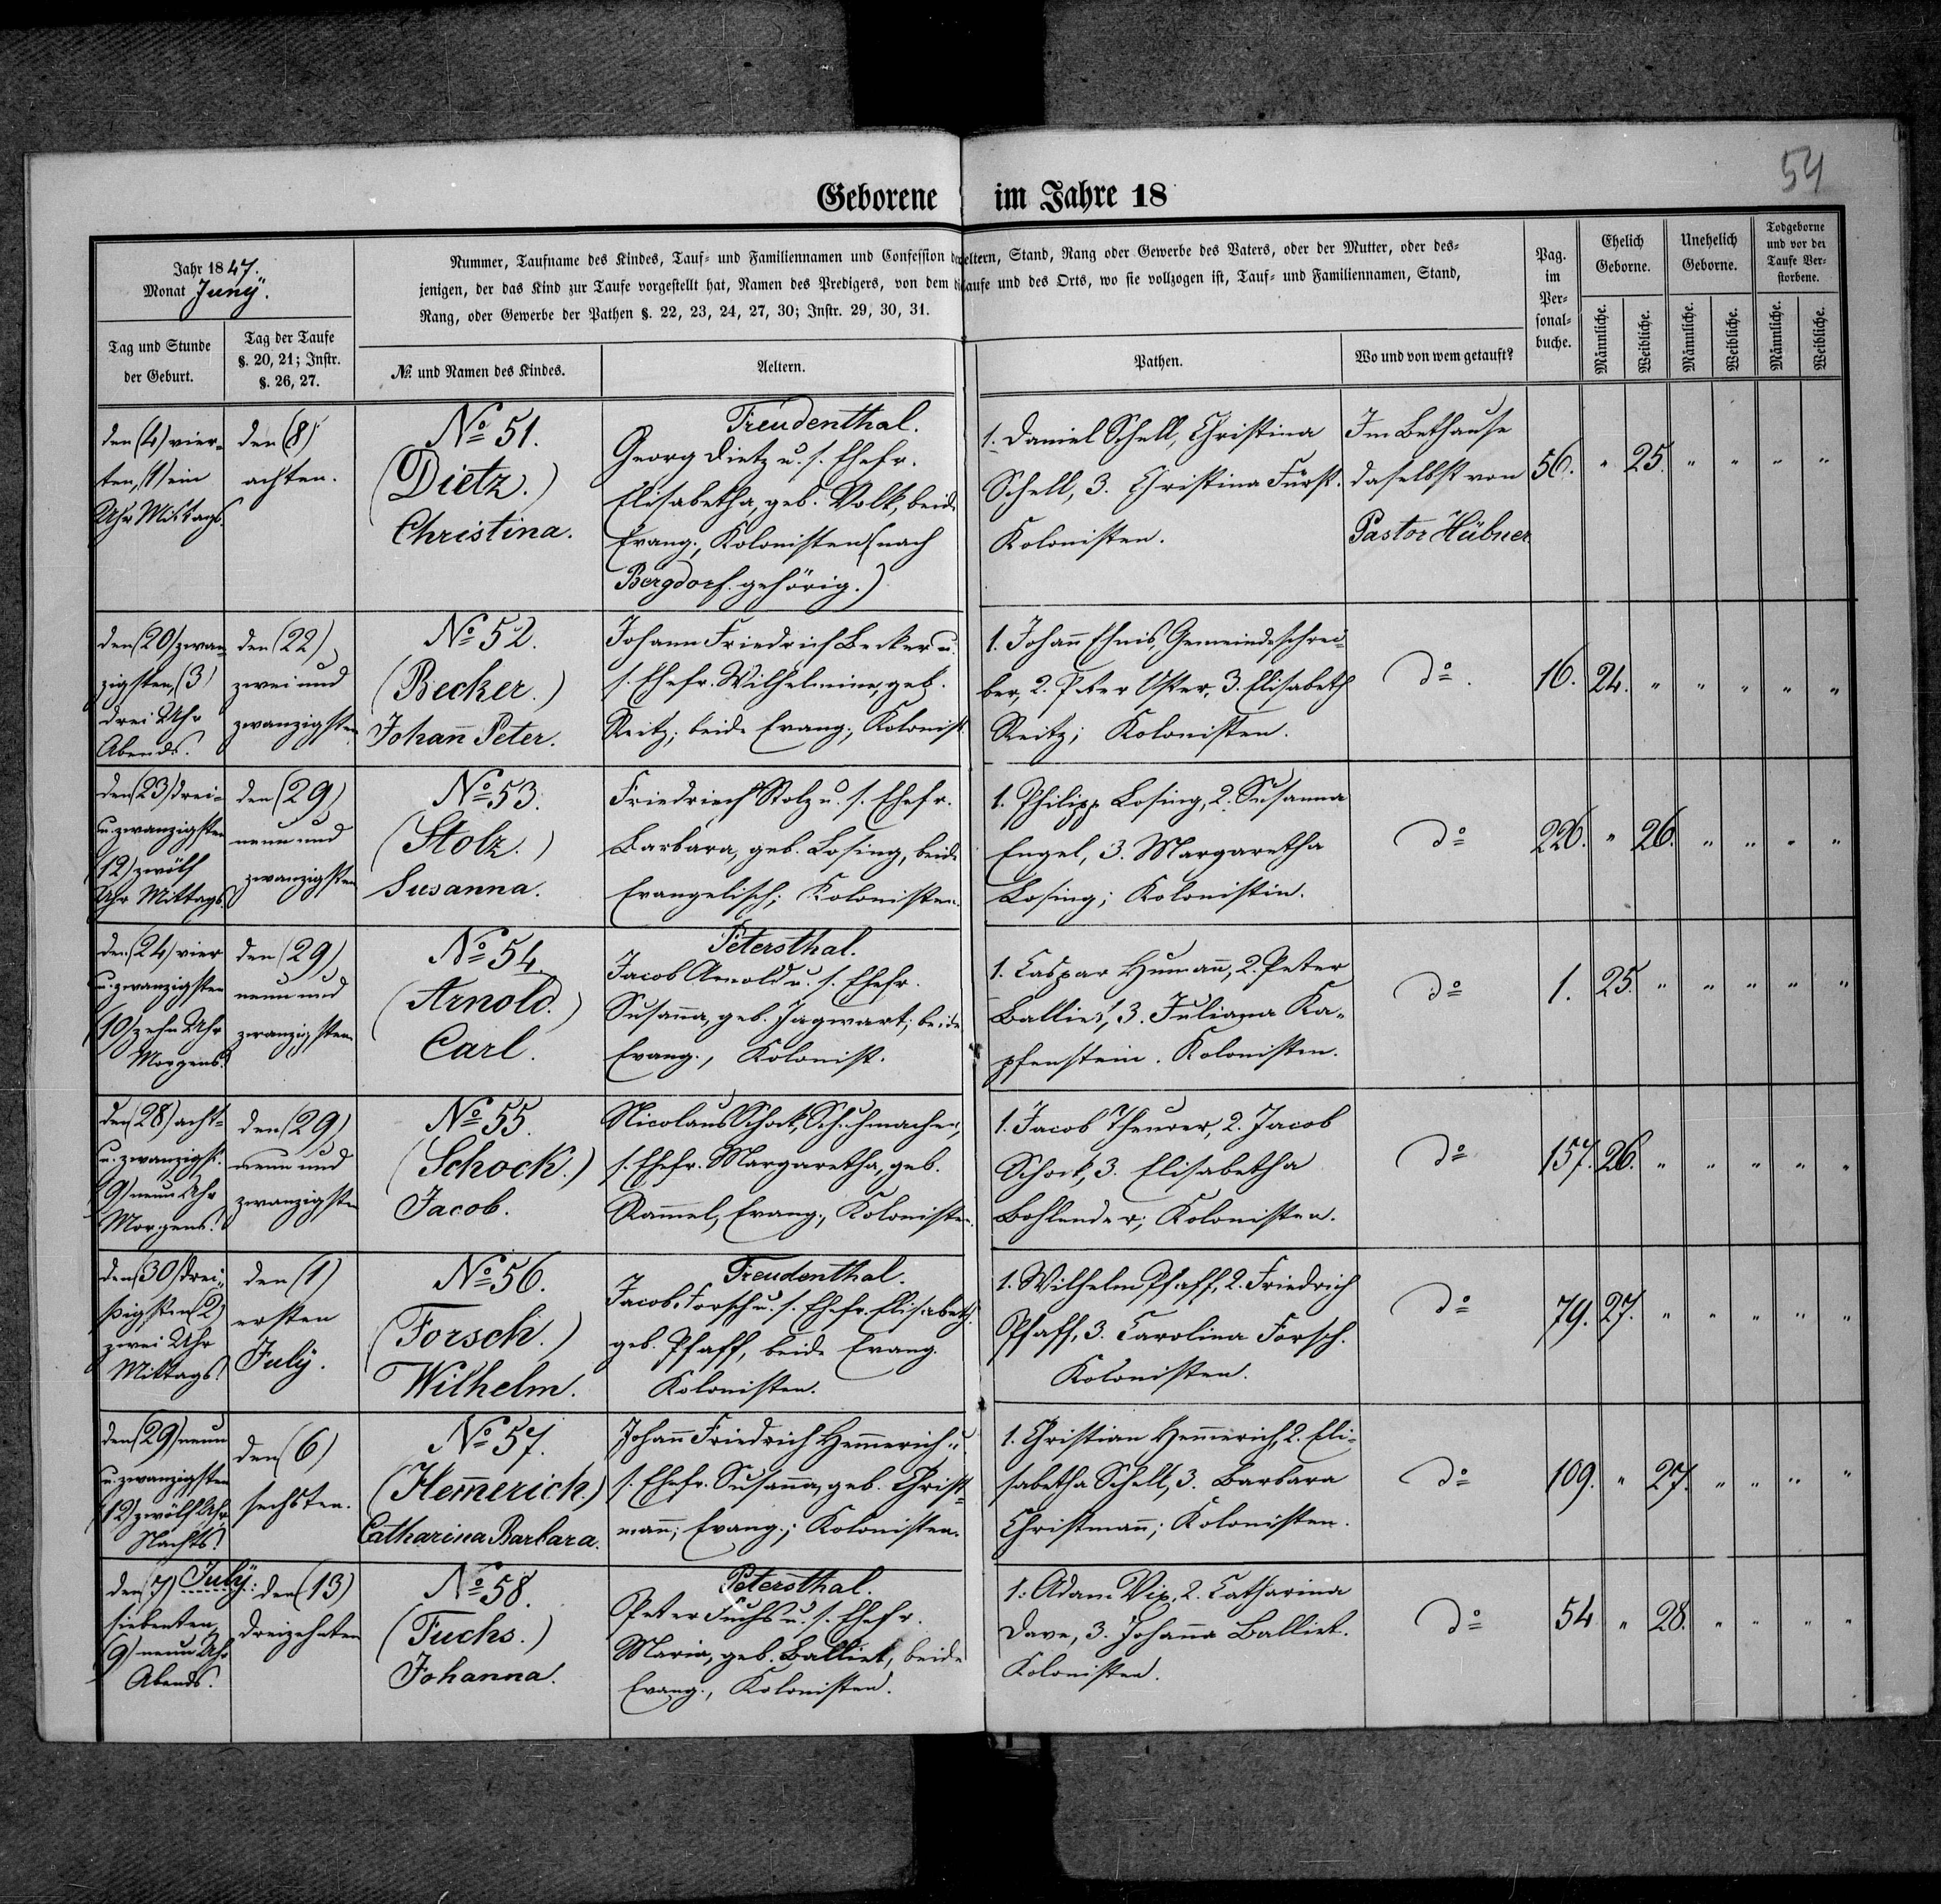 54
Geborene im Jahre 18
Jahr 1847.
Monat Juny.
Nummer, Taufname des Kindes, Tauf- und Familiennamen und Confession eltern, Stand, Rang oder Gewerbe des Vaters, oder der Mutter, oder des-
jenigen, der das Kind zur Taufe vorgestellt hat, Namen des Predigers, von dem aufe und des Orts, wo sie vollzogen ist, Tauf- und Familiennamen, Stand,
Rang, oder Gewerbe der Pathen §. 22, 23, 24, 27, 30; Instr. 29, 30, 31.
Tag und Stunde
der Geburt.
Tag der Taufe
§. 20, 21; Instr.
§. 26, 27.
№ und Namen des Kindes.
Aeltern.
Pathen.
Wo und von wem getauft?
Pag.
im
Per-
sonal-
buche.
Ehelich
Geborne.
Unehelich
Geborne.
Todgeborne
und vor der
Taufe Ver-
storbene.
Männliche.
Weibliche.
Männliche.
Weibliche.
Männliche.
Weibliche.
den (4) vier-
ten, (1) ein
Uhr Mittags.
den (8)
achten.
No 51.
(Dietz.)
Christina.
Freudenthal.
Georg Dietz u. s. Ehefr.
Elisabetha, geb. Volk, beide
Evang., Kolonisten (nach
Bergdorf gehörig.)
1. Daniel Schell, Christina
Schell, 3. Christina Fürst.
Kolonisten.
Im Bethause
daselbst von
Pastor Hübner
56. " 25. " " " "
den (20) zwan-
zigsten, (3)
drei Uhr
Abends.
den (22)
zwei und
zwanzigsten
No 52.
(Becker.)
Johañ Peter.
Johann Friedrich Becker u.
s. Ehefr. Wilhelmine, geb.
Reitz; beide Evang., Kolonist.
1. Johañ Ehnis, Gemeindeschrei-
ber, 2. Peter Uster, 3. Elisabeth
Reitz; Kolonisten.
do.
16. 24. " " " " "
den (23) drei-
u. zwanzigsten
(12) zwölf
Uhr Mittags.
den (29)
neun und
zwanzigsten
No 53.
(Stolz.)
Susanna.
Friedrich Stolz u. s. Ehefr.
Barbara, geb. Losing, beide
Evangelisch; Kolonisten.
1. Philipp Losing, 2. Susanna
Engel, 3. Margaretha
Losing; Kolonistin.
do
226. " 26. " " " "
den (24) vier
u. zwanzigsten
(10) zehn Uhr
Morgens.
den (29)
neun und
zwanzigsten
No 54.
(Arnold.)
Carl.
Petersthal.
Jacob Arnold u. s. Ehefr.
Susaña, geb. Jagwart; beide
Evang., Kolonist.
1. Caspar Humañ, 2. Peter
Balliet, 3. Juliana Ka-
pfenstein. Kolonisten.
do
1. 25. " " " " "
den (28) acht-
u. zwanzigst.
9) neun Uhr
Morgens.
den (29)
neun und
zwanzigsten
No 55.
(Schock.)
Jacob.
Nicolaus Schock, Schuhmacher,
s. Ehefr. Margaretha, geb.
Ram̄el, Evang., Kolonisten.
1. Jacob Theurer, 2. Jacob
Schock, 3. Elisabetha
Bohlender; Kolonisten.
do
157. 26. " " " " "
den (30) drei-
ßigsten (2)
zwei Uhr
Mittags.
den (1)
ersten
July.
No 56.
(Forsch.)
Wilhelm.
Freudenthal.
Jacob Forsch u. s. Ehefr. Elisabeth.
geb. Pfaff, beide Evang.
Kolonisten.
1. Wilhelm Pfaff, 2. Friedrich
Pfaff, 3. Carolina Forsch.
Kolonisten.
do
79. 27. " " " " "
den (29) neun
u. zwanzigsten
(12) zwölf Uhr
Nachts.
den (6)
sechsten.
No 57.
(Hem̄erich.)
Catharina Barbara.
Johañ Friedrich Hem̄erich u.
s. Ehefr. Susaña, geb. Christ-
mañ; Evang.; Kolonisten.
1. Christian Hem̄erich, 2. Eli-
sabetha Schell, 3. Barbara
Christmañ; Kolonisten.
do
109. " 27. " " " "
den (7) July:
siebenten,
(9) neun Uhr
Abends.
den (13)
dreizehnten
No 58.
(Fuchs.)
Johanna.
Petersthal.
Peter Fuchs u. s. Ehefr.
Maria, geb. Balliet, beide
Evang., Kolonisten.
1. Adam Vix, 2. Catharina
Dave, 3. Johaña Balliet.
Kolonisten.
do
54 " 28. " " " "